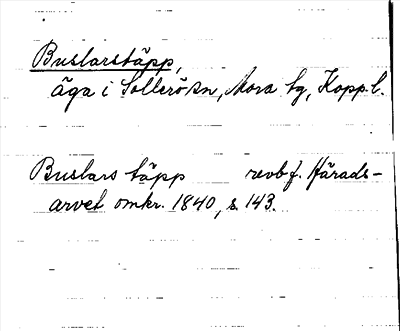 Buslarstäpp,
äga i Sollerö sn, Mora tg, Kopp. l.
Buslars täpp revb f. Härads-
arvet omkr. 1840, s. 143.